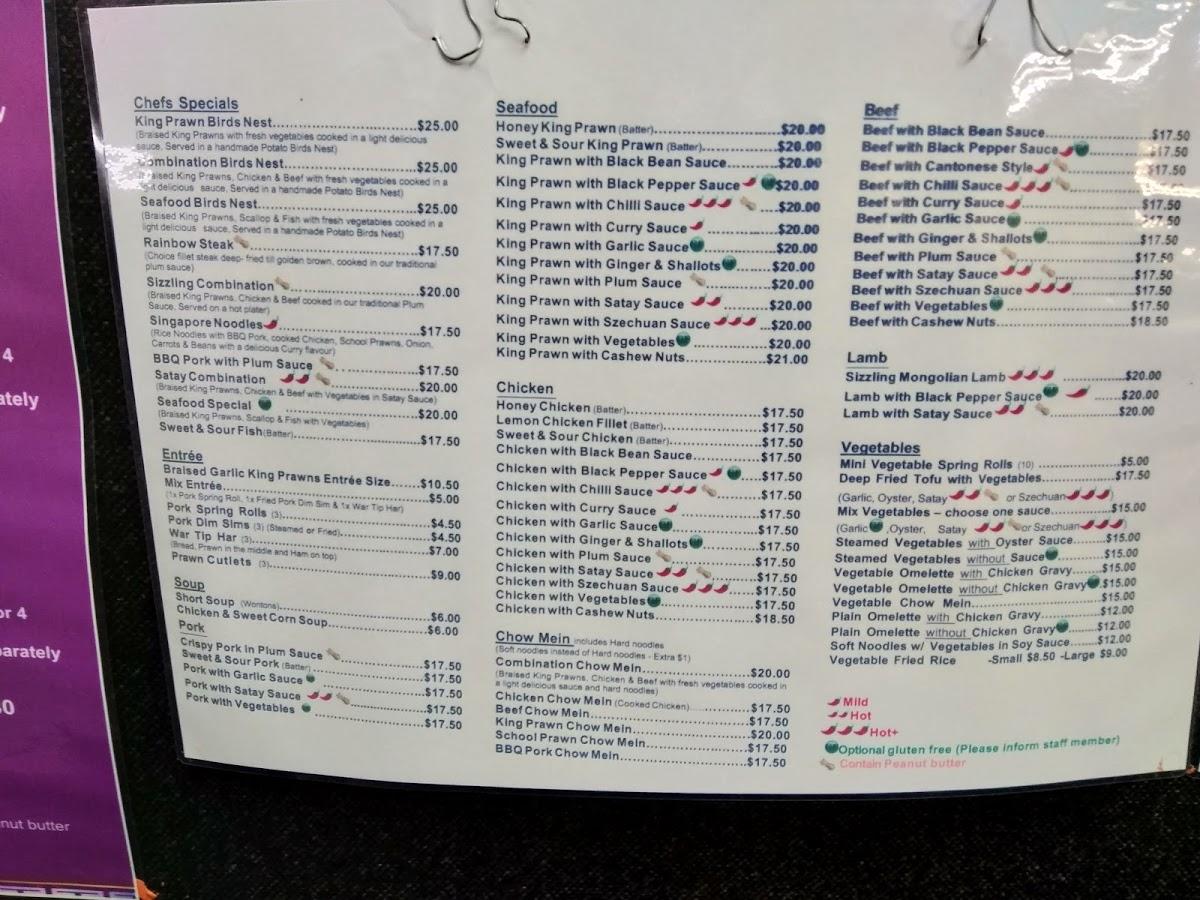 Chefs Specials
King Prawn Birds Nest..............................$25.00
(Braised King Prawns with fresh vegetables cooked in a light delicious
sauce, Served in a handmade Potato Birds Nest)
Combination Birds Nest............................$25.00
(Braised King Prawns, Chicken & Beef with fresh vegetables cooked in a
light delicious sauce, Served in a handmade Potato Birds Nest)
Seafood Birds Nest..................................$25.00
(Braised King Prawns, Scallop & Fish with fresh vegetables cooked in a
light delicious sauce, Served in a handmade Potato Birds Nest)
Rainbow Steak ..................................$17.50
(Choice fillet steak deep- fried till golden brown, cooked in our traditional
plum sauce)
Sizzling Combination ..............................$20.00
(Braised King Prawns, Chicken & Beef cooked in our traditional Plum
Sauce, Served on a hot plater)
Singapore Noodles ..............................$17.50
(Rice Noodles with BBQ Pork, cooked Chicken, School Prawns, Onion,
Carrots & Beans with a delicious Curry flavour)
BBQ Pork with Plum Sauce ........................$17.50
Satay Combination ........................$20.00
(Braised King Prawns, Chicken & Beef with Vegetables in Satay Sauce)
Seafood Special ..............................$20.00
(Braised King Prawns, Scallop & Fish with Vegetables)
Sweet & Sour Fish(Batter)..........................$17.50
Entrée
Braised Garlic King Prawns Entrée Size.......$10.50
Mix Entrée.............................................$5.00
(1x Pork Spring Roll, 1x Fried Pork Dim Sim & 1x War Tip Har)
Pork Spring Rolls (3)..............................$4.50
Pork Dim Sims (3) (Steamed or Fried)............$4.50
War Tip Har (3)....................................$7.00
(Bread, Prawn in the middle and Ham on top)
Prawn Cutlets (3)..................................$9.00
Soup
Short Soup (Wontons)..............................$6.00
Chicken & Sweet Corn Soup.....................$6.00
Pork
Crispy Pork in Plum Sauce ......................$17.50
Sweet & Sour Pork (Batter).......................$17.50
Pork with Garlic Sauce ..........................$17.50
Pork with Satay Sauce ........................$17.50
Pork with Vegetables ..........................$17.50
Seafood
Honey King Prawn (Batter)..........................$20.00
Sweet & Sour King Prawn (Batter)................$20.00
King Prawn with Black Bean Sauce.............$20.00
King Prawn with Black Pepper Sauce $20.00
King Prawn with Chilli Sauce ....$20.00
King Prawn with Curry Sauce ..................$20.00
King Prawn with Garlic Sauce ..................$20.00
King Prawn with Ginger & Shallots ........$20.00
King Prawn with Plum Sauce ..............$20.00
King Prawn with Satay Sauce ............$20.00
King Prawn with Szechuan Sauce ...$20.00
King Prawn with Vegetables ....................$20.00
King Prawn with Cashew Nuts....................$21.00
Chicken
Honey Chicken (Batter)..............................$17.50
Lemon Chicken Fillet (Batter)......................$17.50
Sweet & Sour Chicken (Batter)....................$17.50
Chicken with Black Bean Sauce.................$17.50
Chicken with Black Pepper Sauce ....$17.50
Chicken with Chilli Sauce ..........$17.50
Chicken with Curry Sauce ....................$17.50
Chicken with Garlic Sauce ....................$17.50
Chicken with Ginger & Shallots ............$17.50
Chicken with Plum Sauce ....................$17.50
Chicken with Satay Sauce ..............$17.50
Chicken with Szechuan Sauce ......$17.50
Chicken with Vegetables ......................$17.50
Chicken with Cashew Nuts.......................$18.50
Chow Mein includes Hard noodles
(Soft noodles instead of Hard noodles - Extra $1)
Combination Chow Mein..........................$20.00
(Braised King Prawns, Chicken & Beef with fresh vegetables cooked in
a light delicious sauce and hard noodles)
Chicken Chow Mein (Cooked Chicken)...............$17.50
Beef Chow Mein......................................$17.50
King Prawn Chow Mein............................$20.00
School Prawn Chow Mein........................$17.50
BBQ Pork Chow Mein..............................$17.50
Beef
Beef with Black Bean Sauce.........................$17.50
Beef with Black Pepper Sauce ..............$17.50
Beef with Cantonese Style ..................$17.50
Beef with Chilli Sauce ..................$17.50
Beef with Curry Sauce ........................$17.50
Beef with Garlic Sauce ........................$17.50
Beef with Ginger & Shallots ..................$17.50
Beef with Plum Sauce ........................$17.50
Beef with Satay Sauce ..................$17.50
Beef with Szechuan Sauce ..............$17.50
Beef with Vegetables ..........................$17.50
Beef with Cashew Nuts..........................$18.50
Lamb
Sizzling Mongolian Lamb ..............$20.00
Lamb with Black Pepper Sauce ......$20.00
Lamb with Satay Sauce ..................$20.00
Vegetables
Mini Vegetable Spring Rolls (10) ..................$5.00
Deep Fried Tofu with Vegetables..................$17.50
(Garlic, Oyster, Satay or Szechuan )
Mix Vegetables – choose one sauce..............$15.00
(Garlic ,Oyster, Satay or Szechuan )
Steamed Vegetables with Oyster Sauce.........$15.00
Steamed Vegetables without Sauce ...........$15.00
Vegetable Omelette with Chicken Gravy........$15.00
Vegetable Omelette without Chicken Gravy .$15.00
Vegetable Chow Mein..............................$15.00
Plain Omelette with Chicken Gravy...............$12.00
Plain Omelette without Chicken Gravy ........$12.00
Soft Noodles w/ Vegetables in Soy Sauce.......$12.00
Vegetable Fried Rice -Small $8.50 -Large $9.00
Mild
Hot
Hot+
Optional gluten free (Please inform staff member)
Contain Peanut butter
4
or 4
nut butter